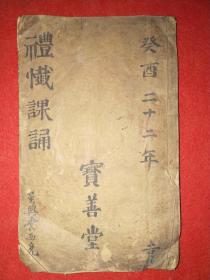 癸酉二十二年
寶善堂
禮懺課誦